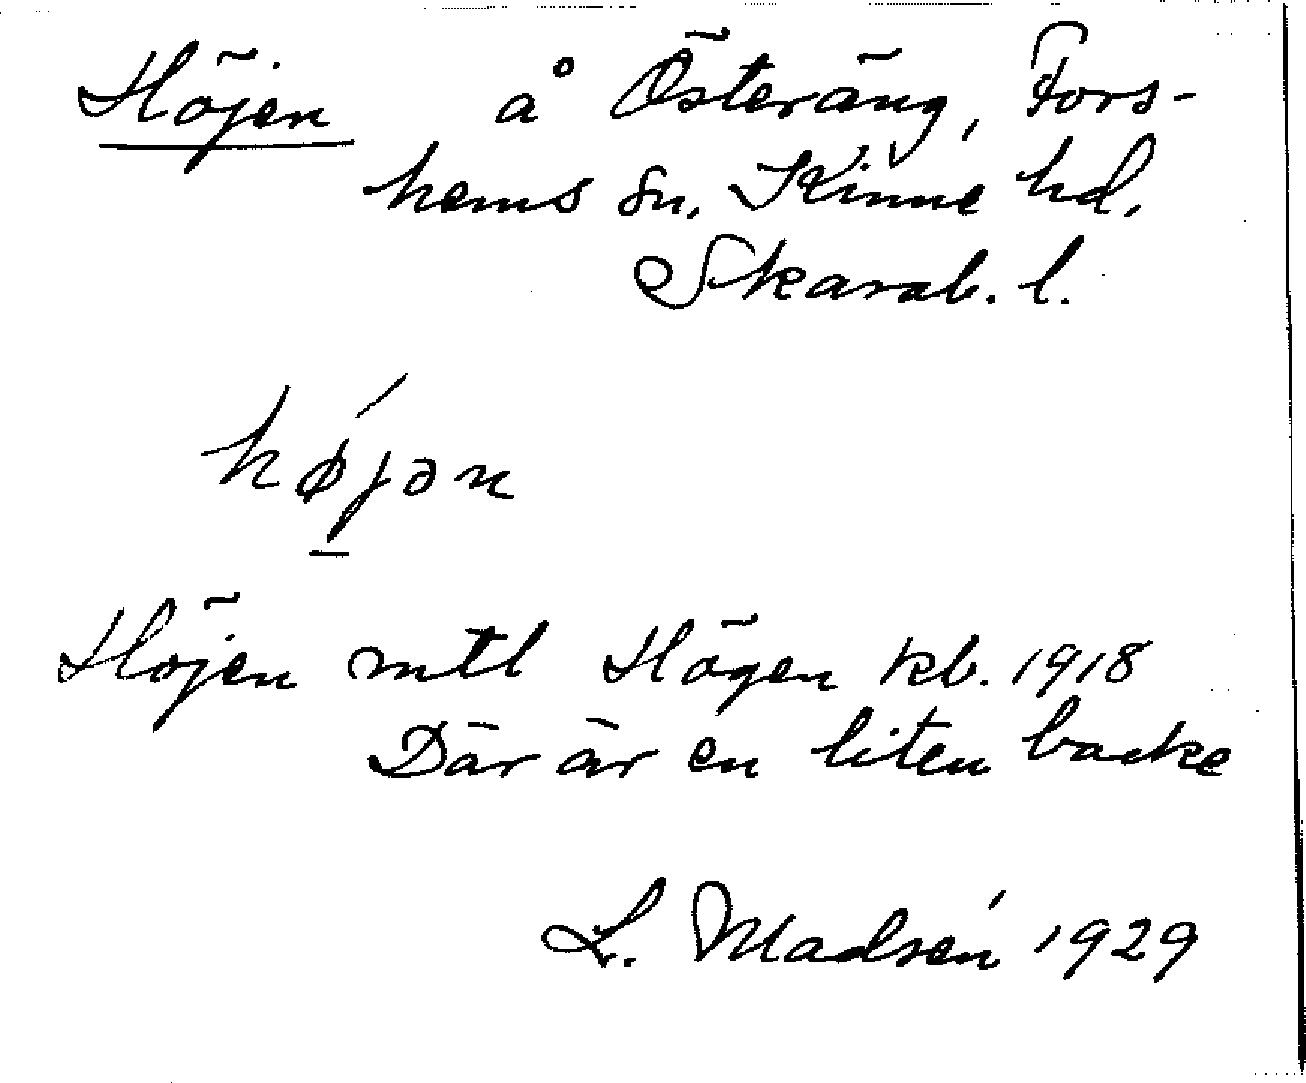 Höjen å Österäng, Fors-
hems sn, Kinne hd,
Skarab. l.
hǿjən
Höjen mtl Högen kb. 1918
Där är en liten backe
L. Madsén 1929